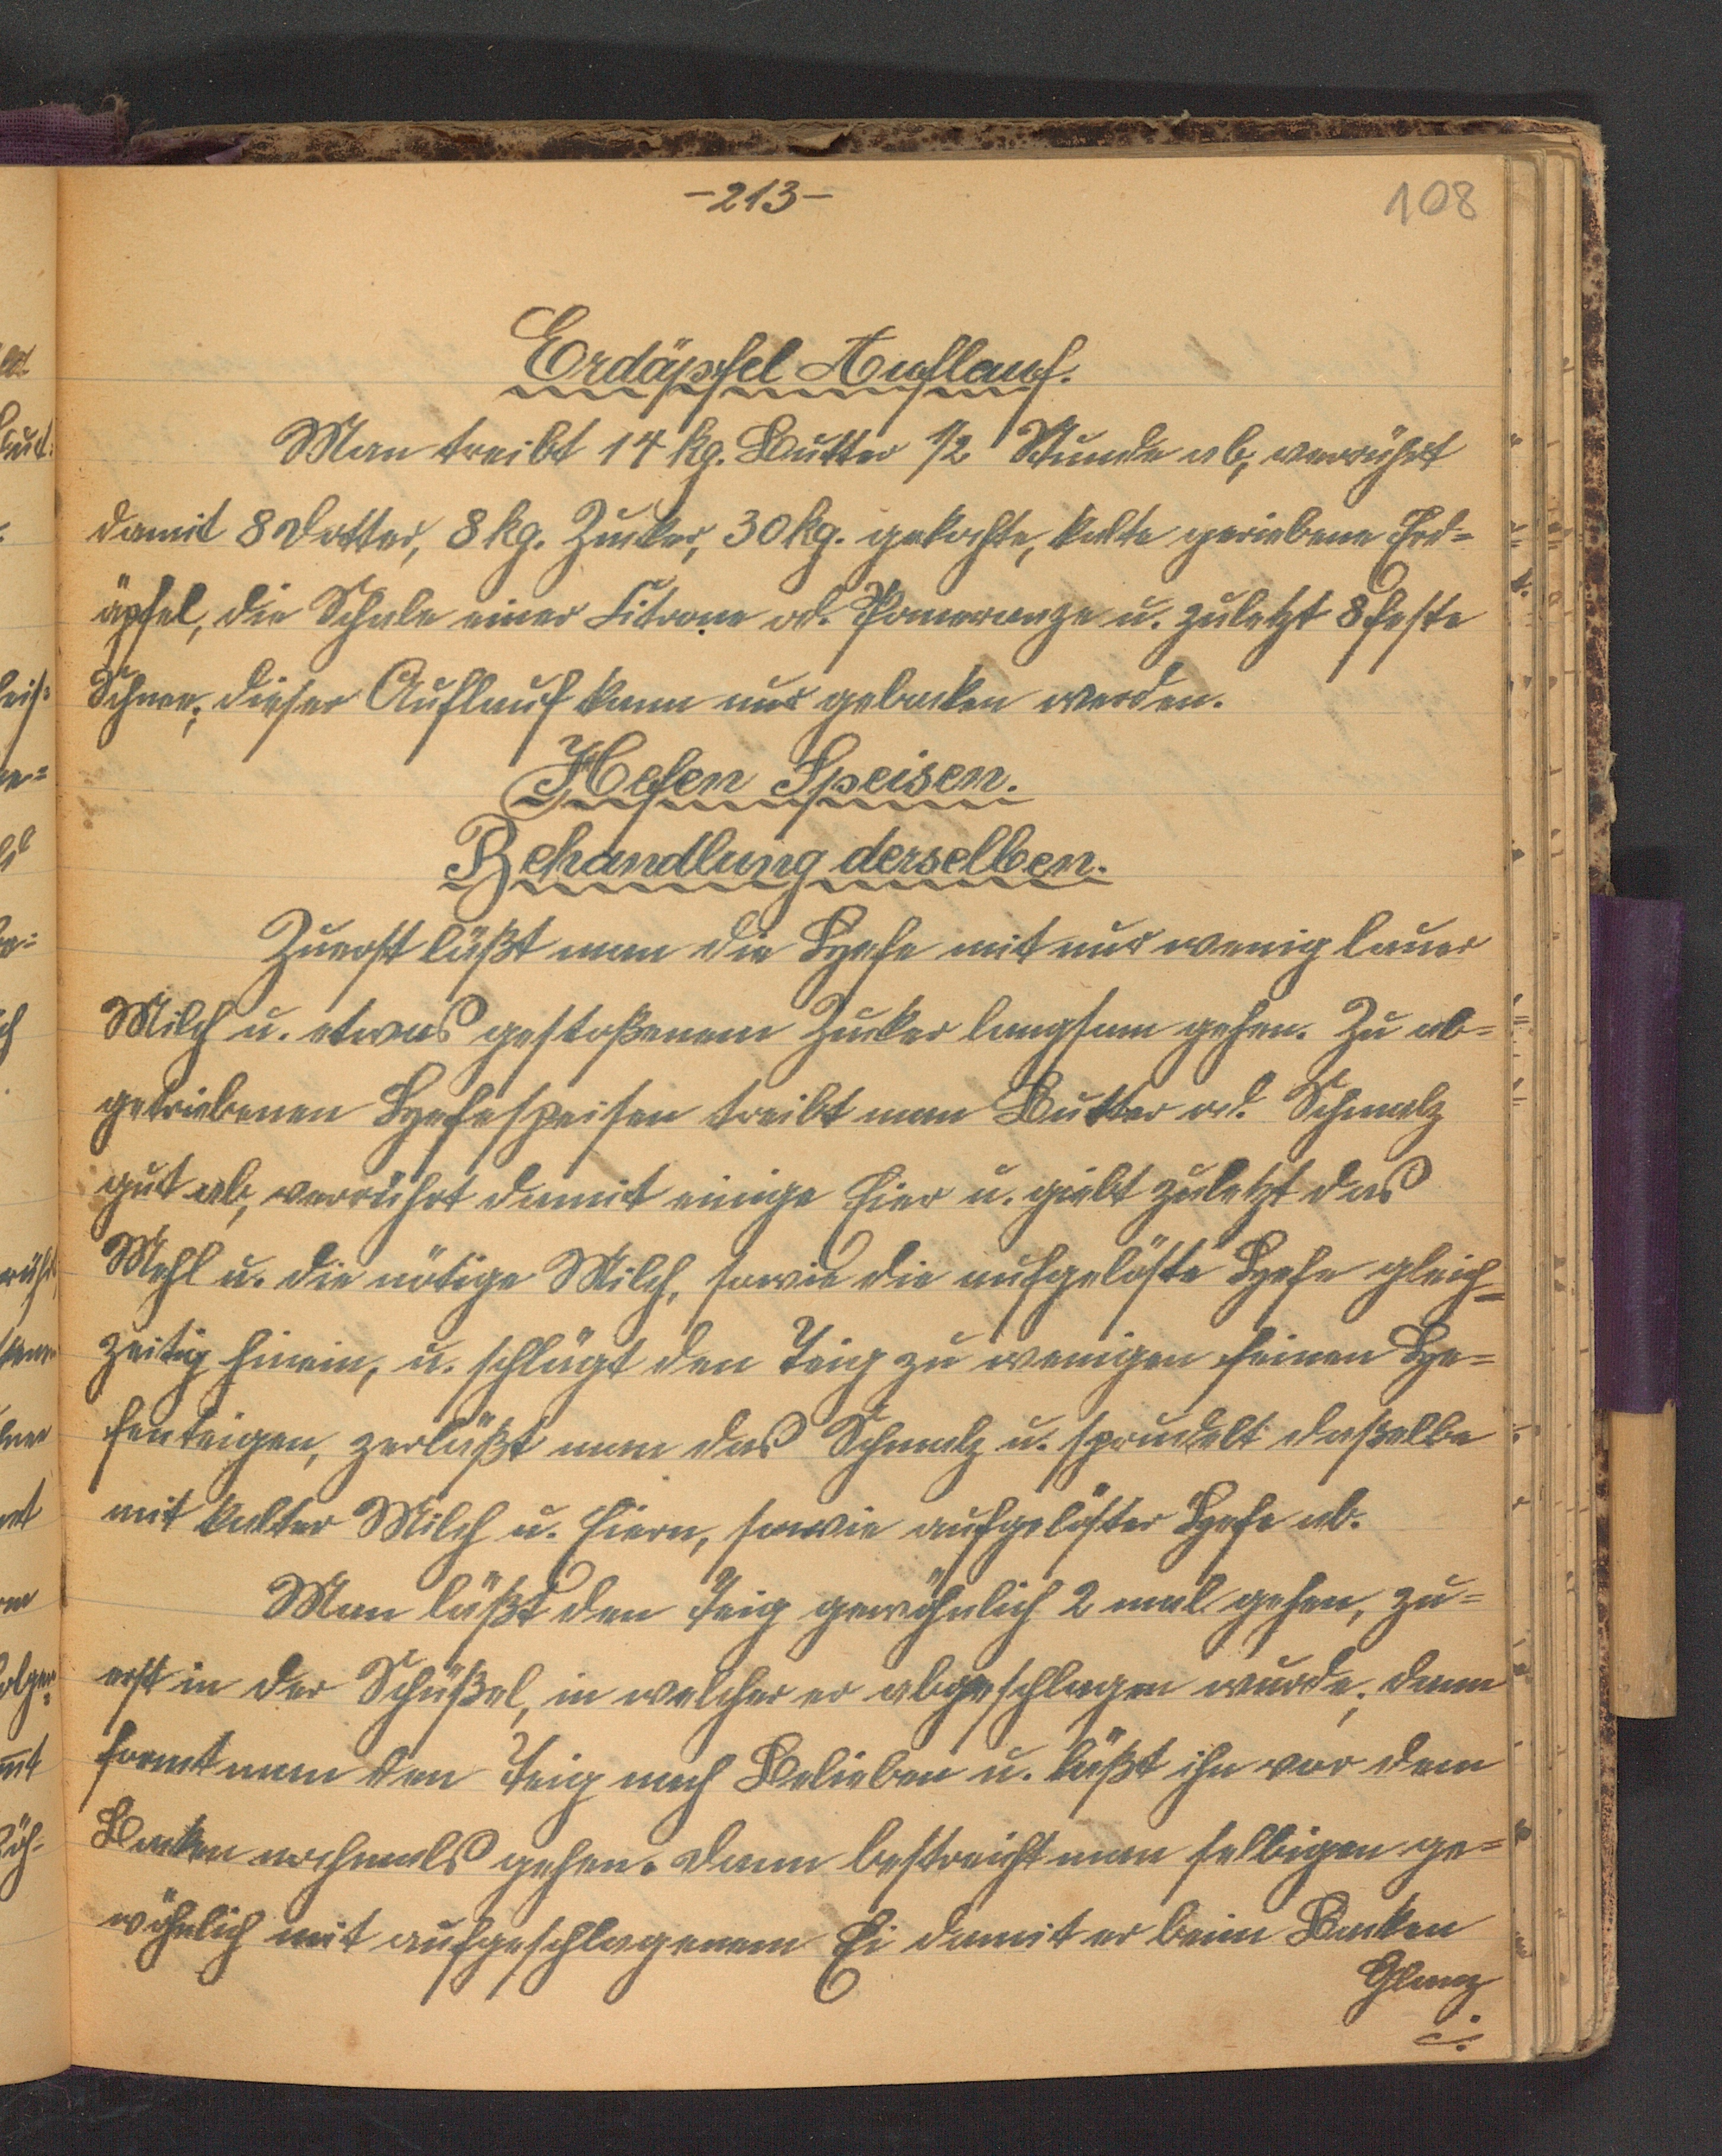 -213-
108
Erdäpfel Auflauf.
Man treibt 14 kg. Butter 1/2 Stunde ab, verrührt
damit 8 Dotter, 8 kg. Zucker, 30 kg. gekochte, kalte geriebene Erd=
äpfel, die Schale einer Citrone od. Pomeranze u. zuletzt 8 feste
Schnee; dieser Auflauf kann nur gebacken werden.
Hefen Speisen.
Behandlung derselben.
Zuerst läßt man die Hefe mit nur wenig lauer
Milch u. etwas gestoßenem Zucker langsam gehen. Zu ab=
getriebenen Hefespeisen treibt man Butter od. Schmalz
gut ab, verrührt damit einige Eier u. giebt zuletzt das
Mehl u. die nötige Milch, sowie die aufgelöste Hefe gleich=
zeitig hinein, u. schlägt den Teig zu wenigen feinen He=
fenteigen, zerläßt man das Schmalz u. sprudelt daßelbe
mit kalter Milch u. Eiern, sowie aufgelöster Hefe ab.
Man läßt den Teig gewöhnlich 2 mal gehen, zu=
erst in der Schüßel, in welcher er abgeschlagen wurde; dann
formt man den Teig nach Belieben u. läßt ihn vor dem
Backen nochmals gehen. Dann bestreicht man selbigen ge=
wöhnlich mit aufgeschlagenem Ei damit er beim Backen
Glanz